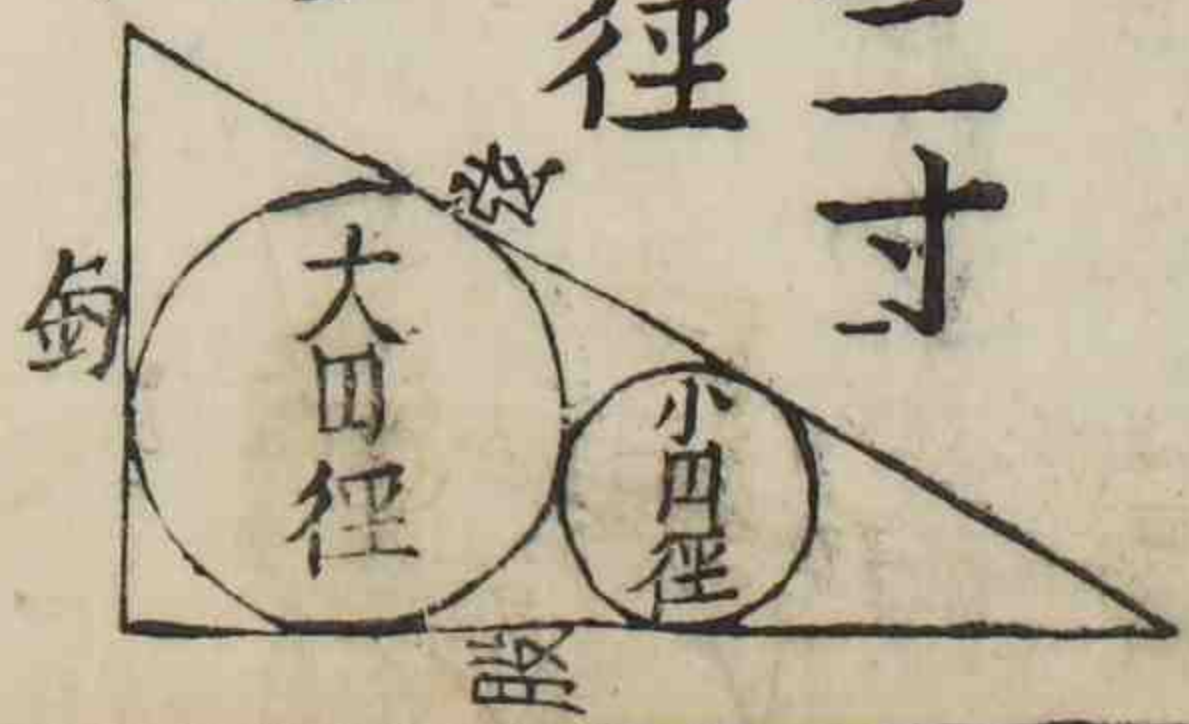 二寸
径
弦
大円径
小円径
勾
股